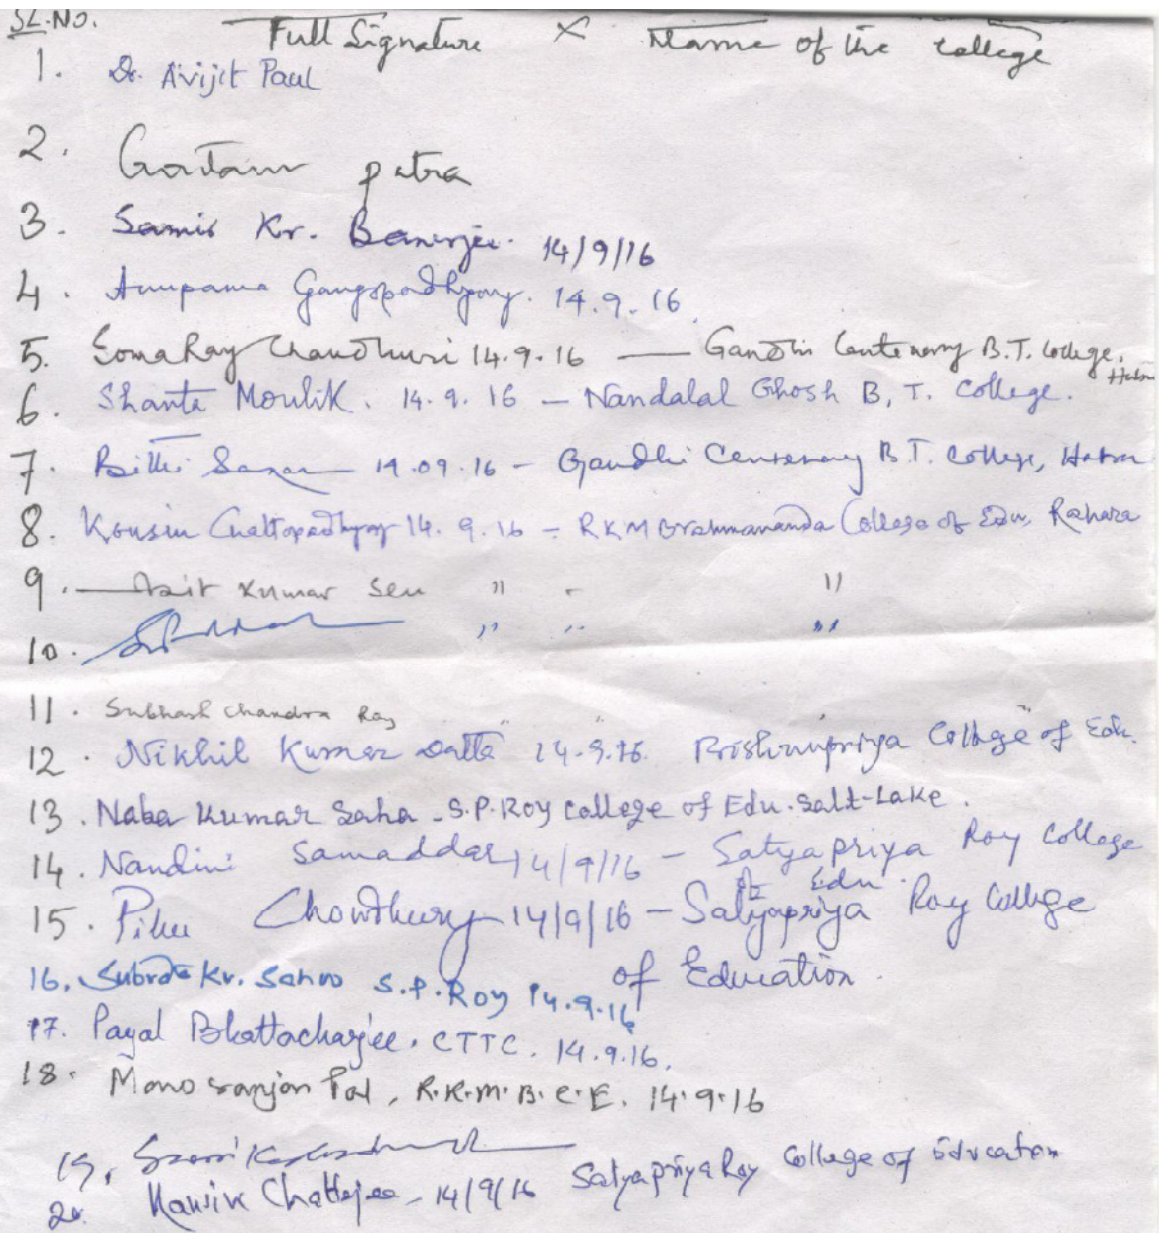 SL.NO. Full Signature X Name of the College
1. Dr. Avijit Paul
2. Goutam patra
3. Samir Kr. Banerjee. 14/9/16
4. Anupama Gangopadhyay. 14.9.16
5. Soma Ray Chaudhuri 14.9.16 — Gandhi Centenary B.T. College,
Habra
6. Shante Moulik. 14.9.16 — Nandalal Ghosh B.T. College.
7. 14.09.16 — Gandhi Centenary B.T. College, Habra
8. Chattopadhyay 14.9.16 — RKM Brahmananda College of Edu, Rahara
9. Kumar Sen " - "
10. " " "
11. Subhash Chandra Ray " " " "
12. Nikhil Kumar Datta 14.9.16. College of Edn.
13. Naba Kumar Saha - S.P. Roy College of Edu. Salt-Lake.
14. Nandini Samaddar 14/9/16 — Satyapriya Roy College
of Edu
15. Piku Chowdhury 14/9/16 — Satyapriya Roy College
of Education.
16. Subrata Kr. S.P. Roy 14.9.16
17. Payal Bhattacharjee. CTTC. 14.9.16.
18. Mano ranjan Pal, R.K.M.B.C.E. 14.9.16
19.
20. Kausik Chatterjee - 14/9/16 Satyapriya Roy College of Education